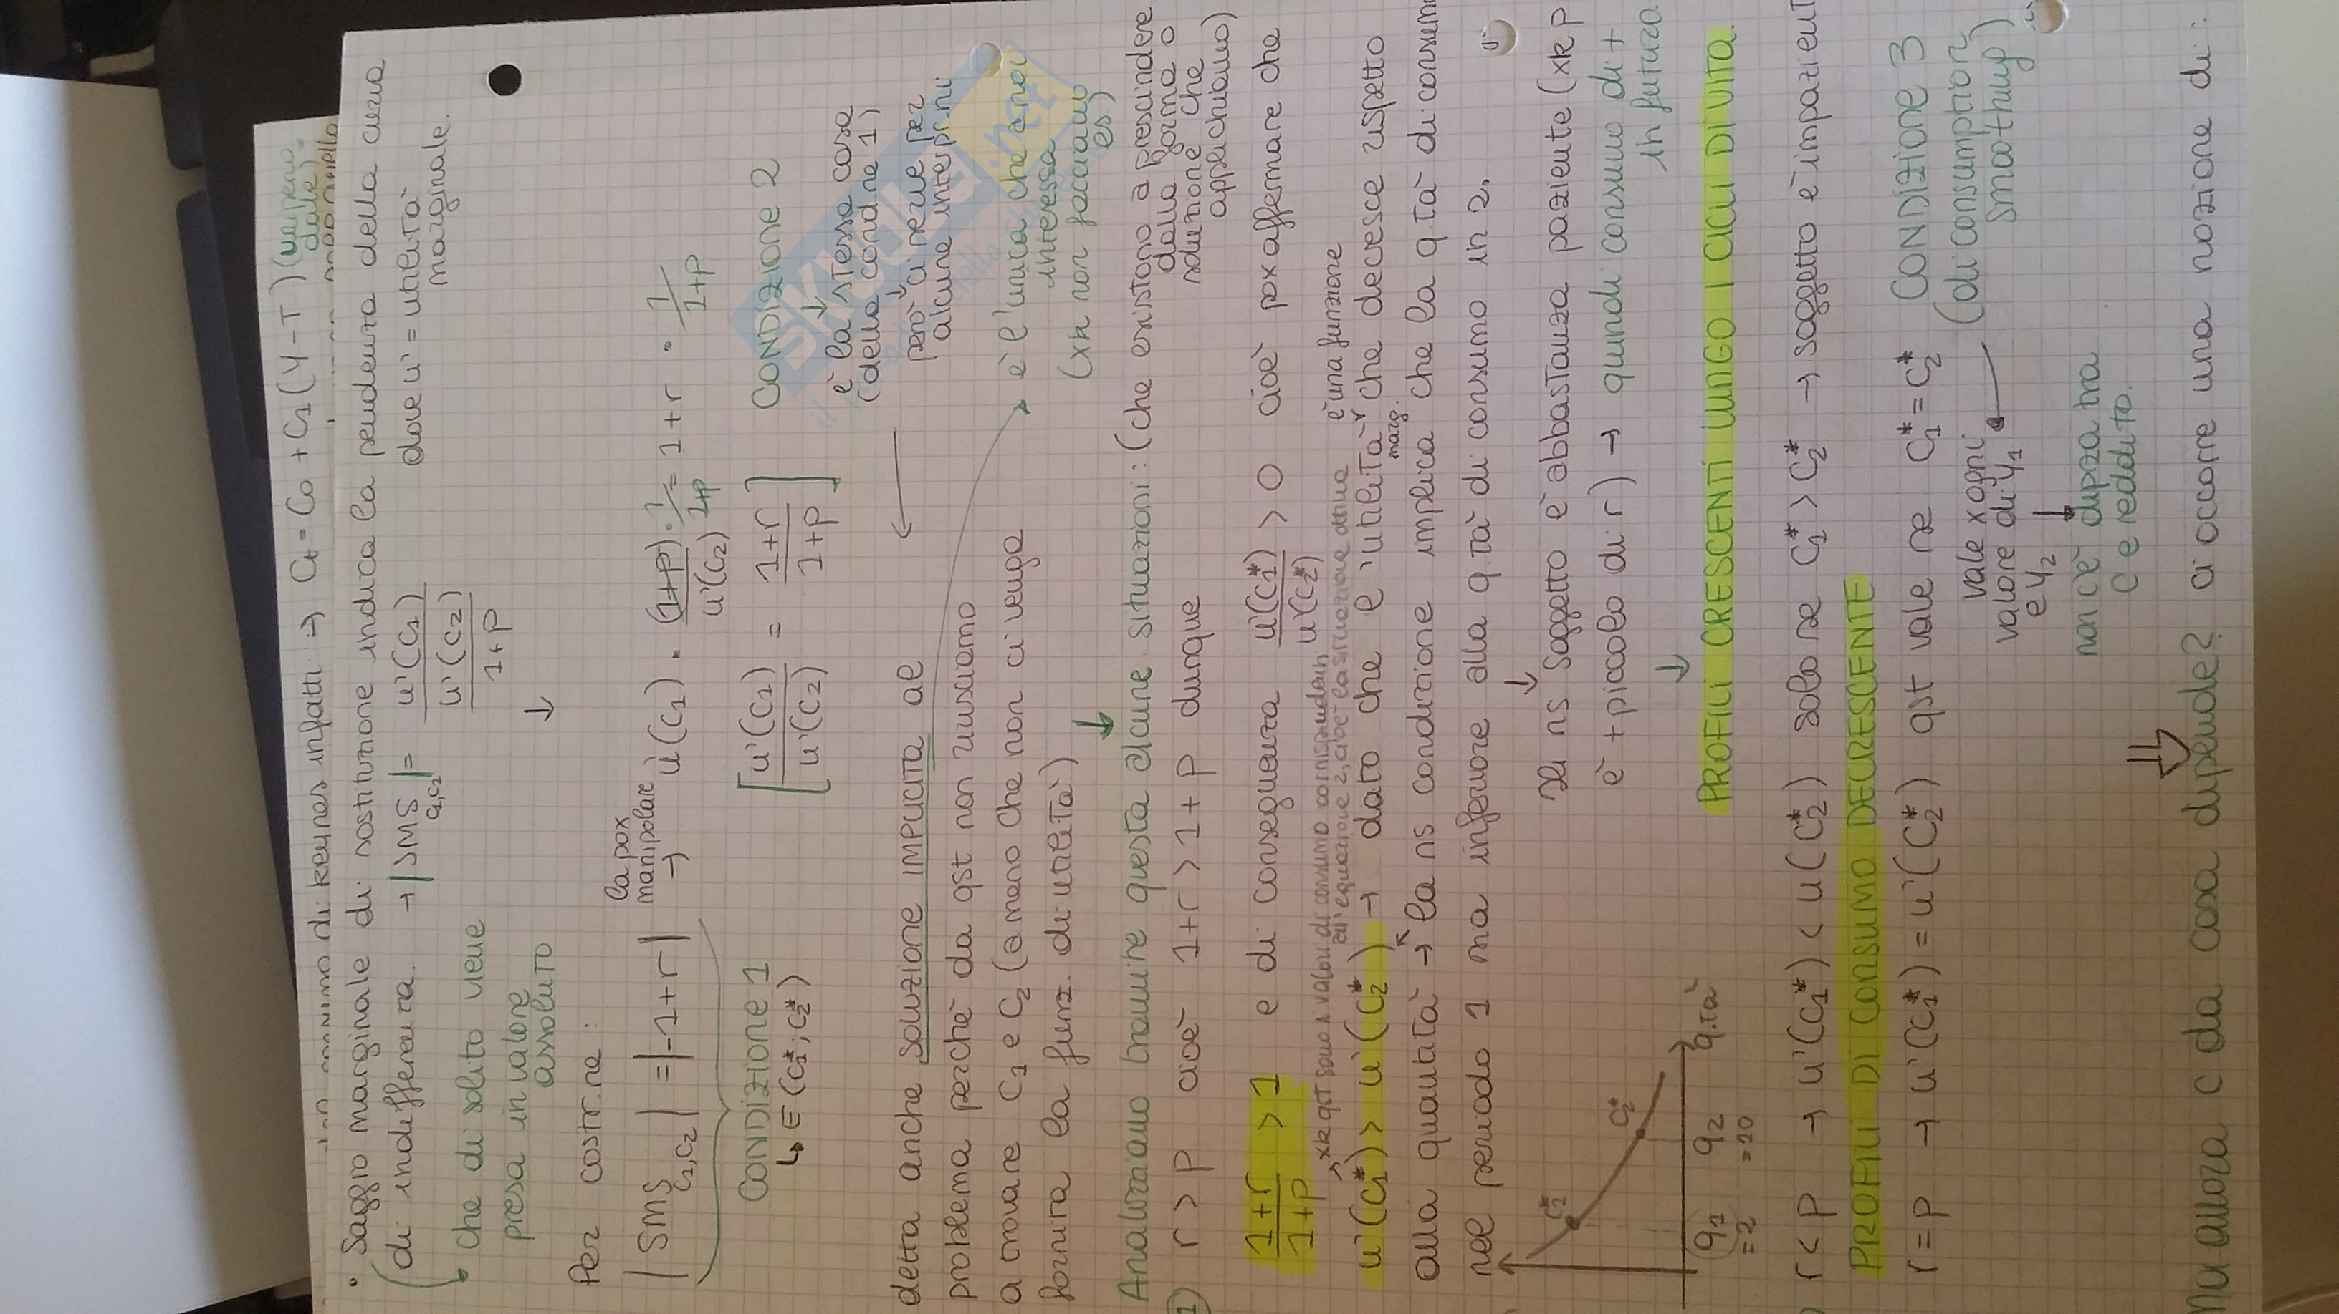 di keynes infatti → Ct = C0 + C1 (Y-T)
• Saggio marginale di sostituzione indica la pendenza della curva
(di indifferenza. → |SMS C1,C2| = u'(C1) / u'(C2) / 1+ρ
dove u' = utilità
marginale.
↳ che di solito viene
presa in valore
assoluto
↓
Per costr.ne:
|SMS C1,C2| = |-1+r|
la pox
manipolare
→
u'(C1) · (1+ρ) / u'(C2) · 1 / 1+ρ = 1+r · 1 / 1+ρ
CONDIZIONE 1
↳ ∈ (C1*; C2*)
[u'(C1) / u'(C2) = 1+r / 1+ρ]
CONDIZIONE 2
↓
è la stessa cosa
(della cond.ne 1)
però ci serve per
alcune interpr.ni
←
detta anche soluzione IMPLICITA al
problema perchè da qst non riusciamo
a trovare C1 e C2 (a meno che non ci venga
fornita la funz. di utilità)
→ è l'unica che a noi
interessa
(xk non facciamo
es)
↓
Analizziamo tramite questa alcune situazioni: (che esistono a prescindere
dalla forma o
funzione che
applichiamo)
1) r > ρ cioè 1+r > 1+ρ dunque
1+r / 1+ρ > 1 e di conseguenza u'(C1*) / u'(C2*) > 0 cioè pox affermare che
xk qst sono i valori di consumo corrispondenti
all'equazione 2, cioè la situazione ottima
è una funzione
u'(C1*) > u'(C2*) → dato che e' utilità marg. che decresce rispetto
alla quantità → la ns condizione implica che la q.tà di consumo
nel periodo 1 sia inferiore alla q.tà di consumo in 2.
↓
se ns soggetto è abbastanza paziente (xk ρ
è + piccolo di r) → quindi consumo di +
in futuro
↓
PROFILI CRESCENTI LUNGO I CICLI DI VITA.
C2*
C2*
q1
=2
q2
=20
q.tà
) r < ρ → u'(C1*) < u(C2*) solo se C1* > C2* → soggetto è impazient
PROFILI DI CONSUMO DECRESCENTE
r = ρ → u'(C1*) = u'(C2*) qst vale se C1* = C2*
CONDIZIONE 3
(di consumption
smoothing)
vale x ogni
valore di Y1
e Y2
↓
non c'è dip.za tra
C e reddito.
⇓
Ma allora C da cosa dipende? Ci occorre una nozione di: